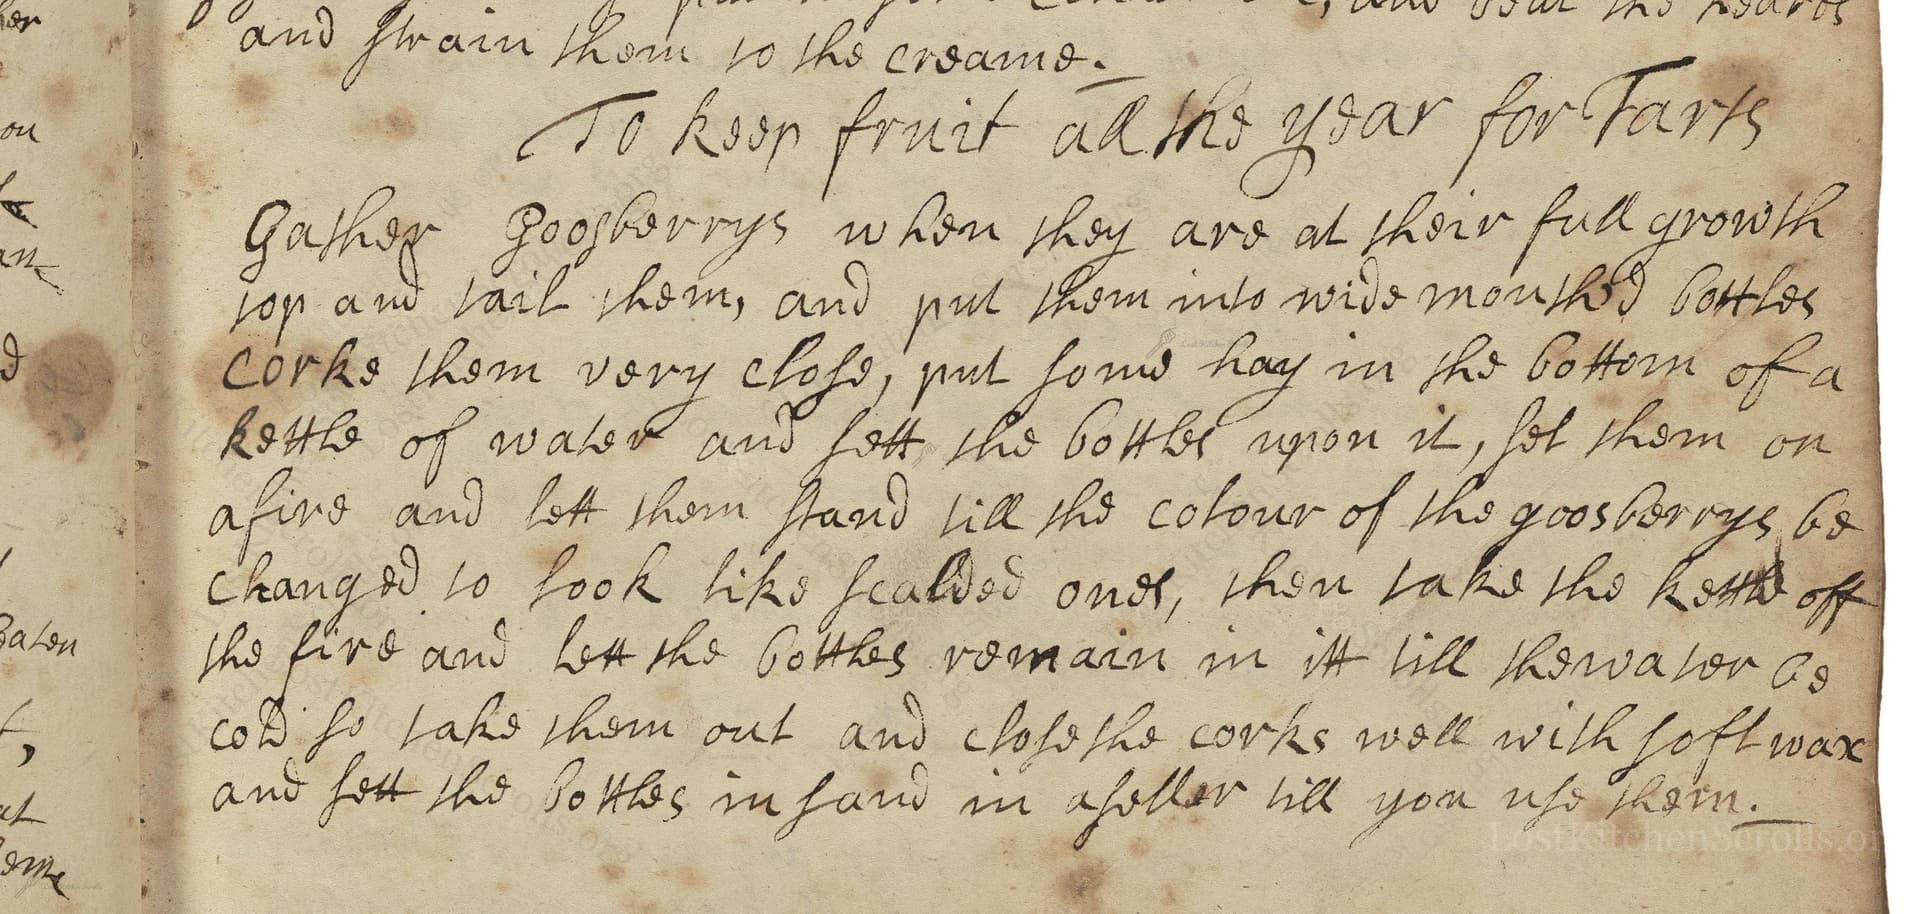 and beat the
and strain them to the creame.
To keep fruit all the year for Tarts
Gather Goosberrys when they are at their full growth
top and tail them, and put them into wide mouthd bottles
corke them very close, put some hay in the bottom of a
kettle of water and sett the bottles upon it, set them on
a fire and lett them stand till the colour of the goosberrys be
changed to look like scalded ones, then take the kettle off
the fire and lett the bottles remain in itt till the water be
cold so take them out and close the corks well with soft wax
and sett the bottles in sand in a seller till you use them.
LostKitchenScrolls.or